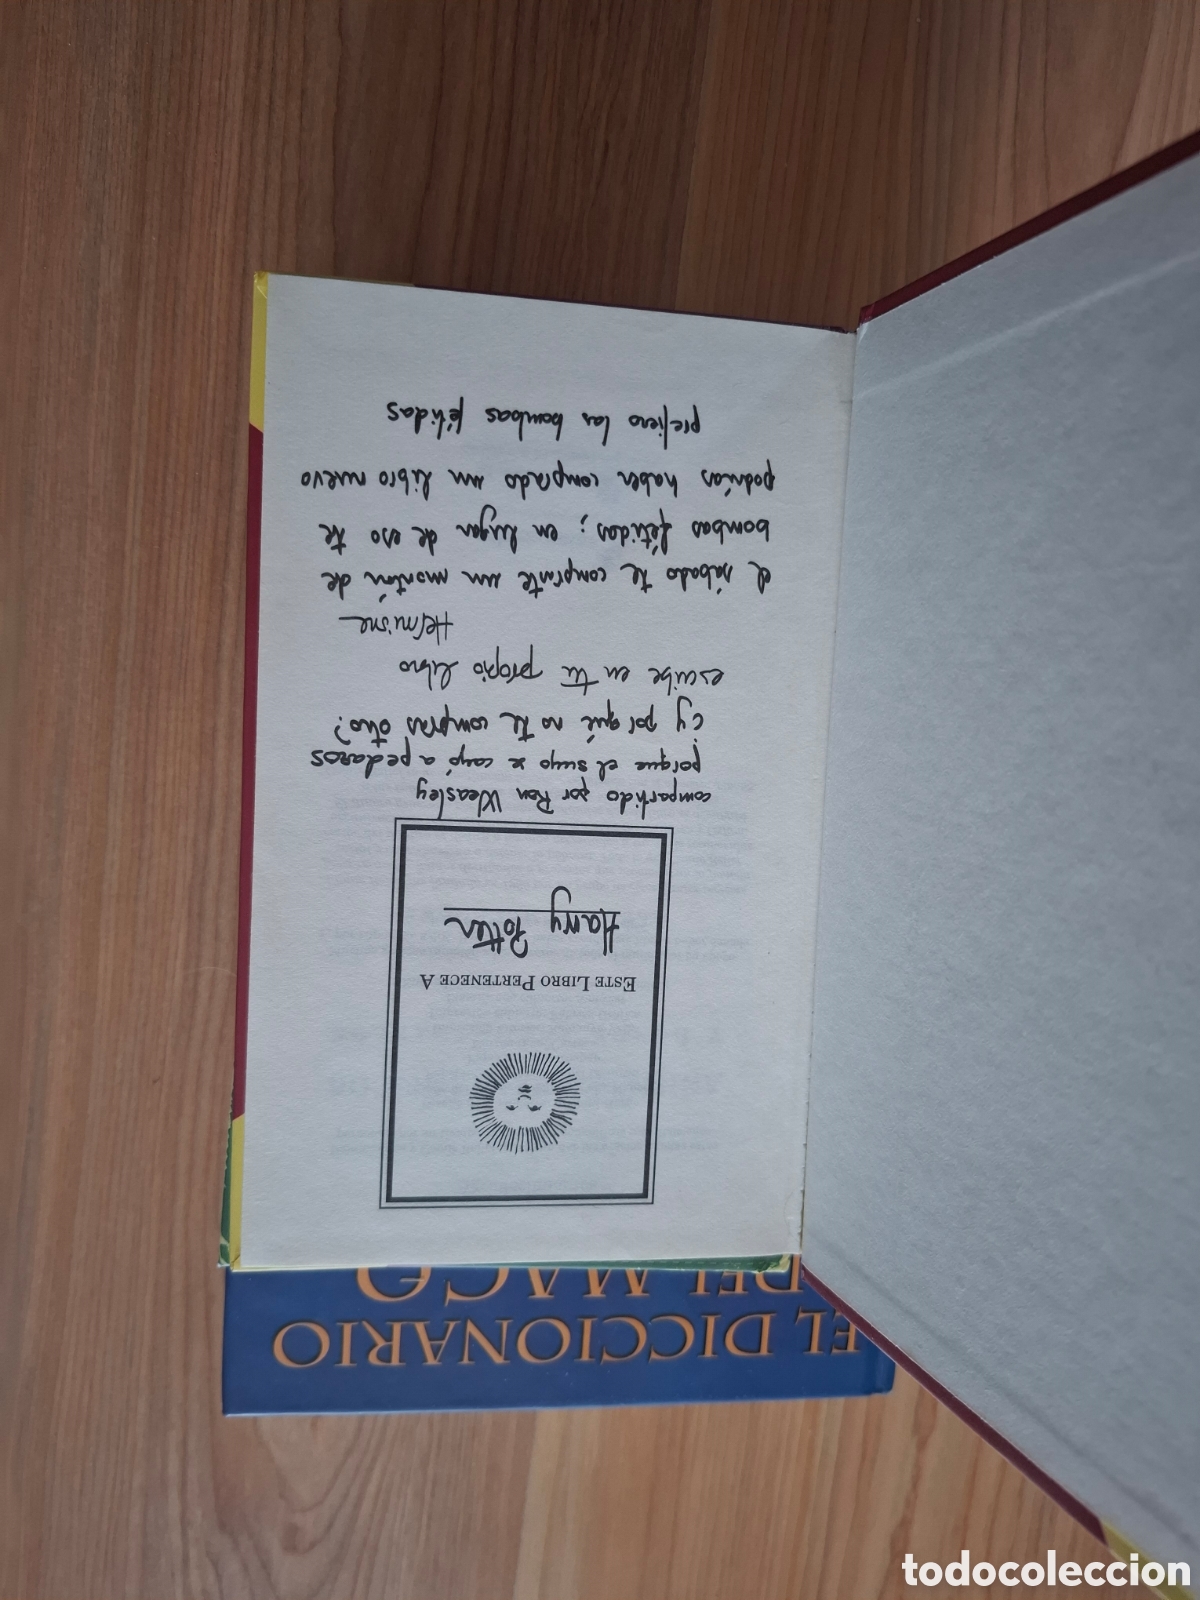 ESTE LIBRO PERTENECE A
Harry Potter
compartido por Ron Weasley
porque el suyo se cayó a pedazos
¿y por qué no te compras otro?
escribe en tu propio libro
Hermione
el sábado te compraste un montón de
bombas fétidas; en lugar de eso te
podrías haber comprado un libro nuevo
prefiero las bombas fétidas
EL DICCIONARIO
DEL MAGO
todocoleccion